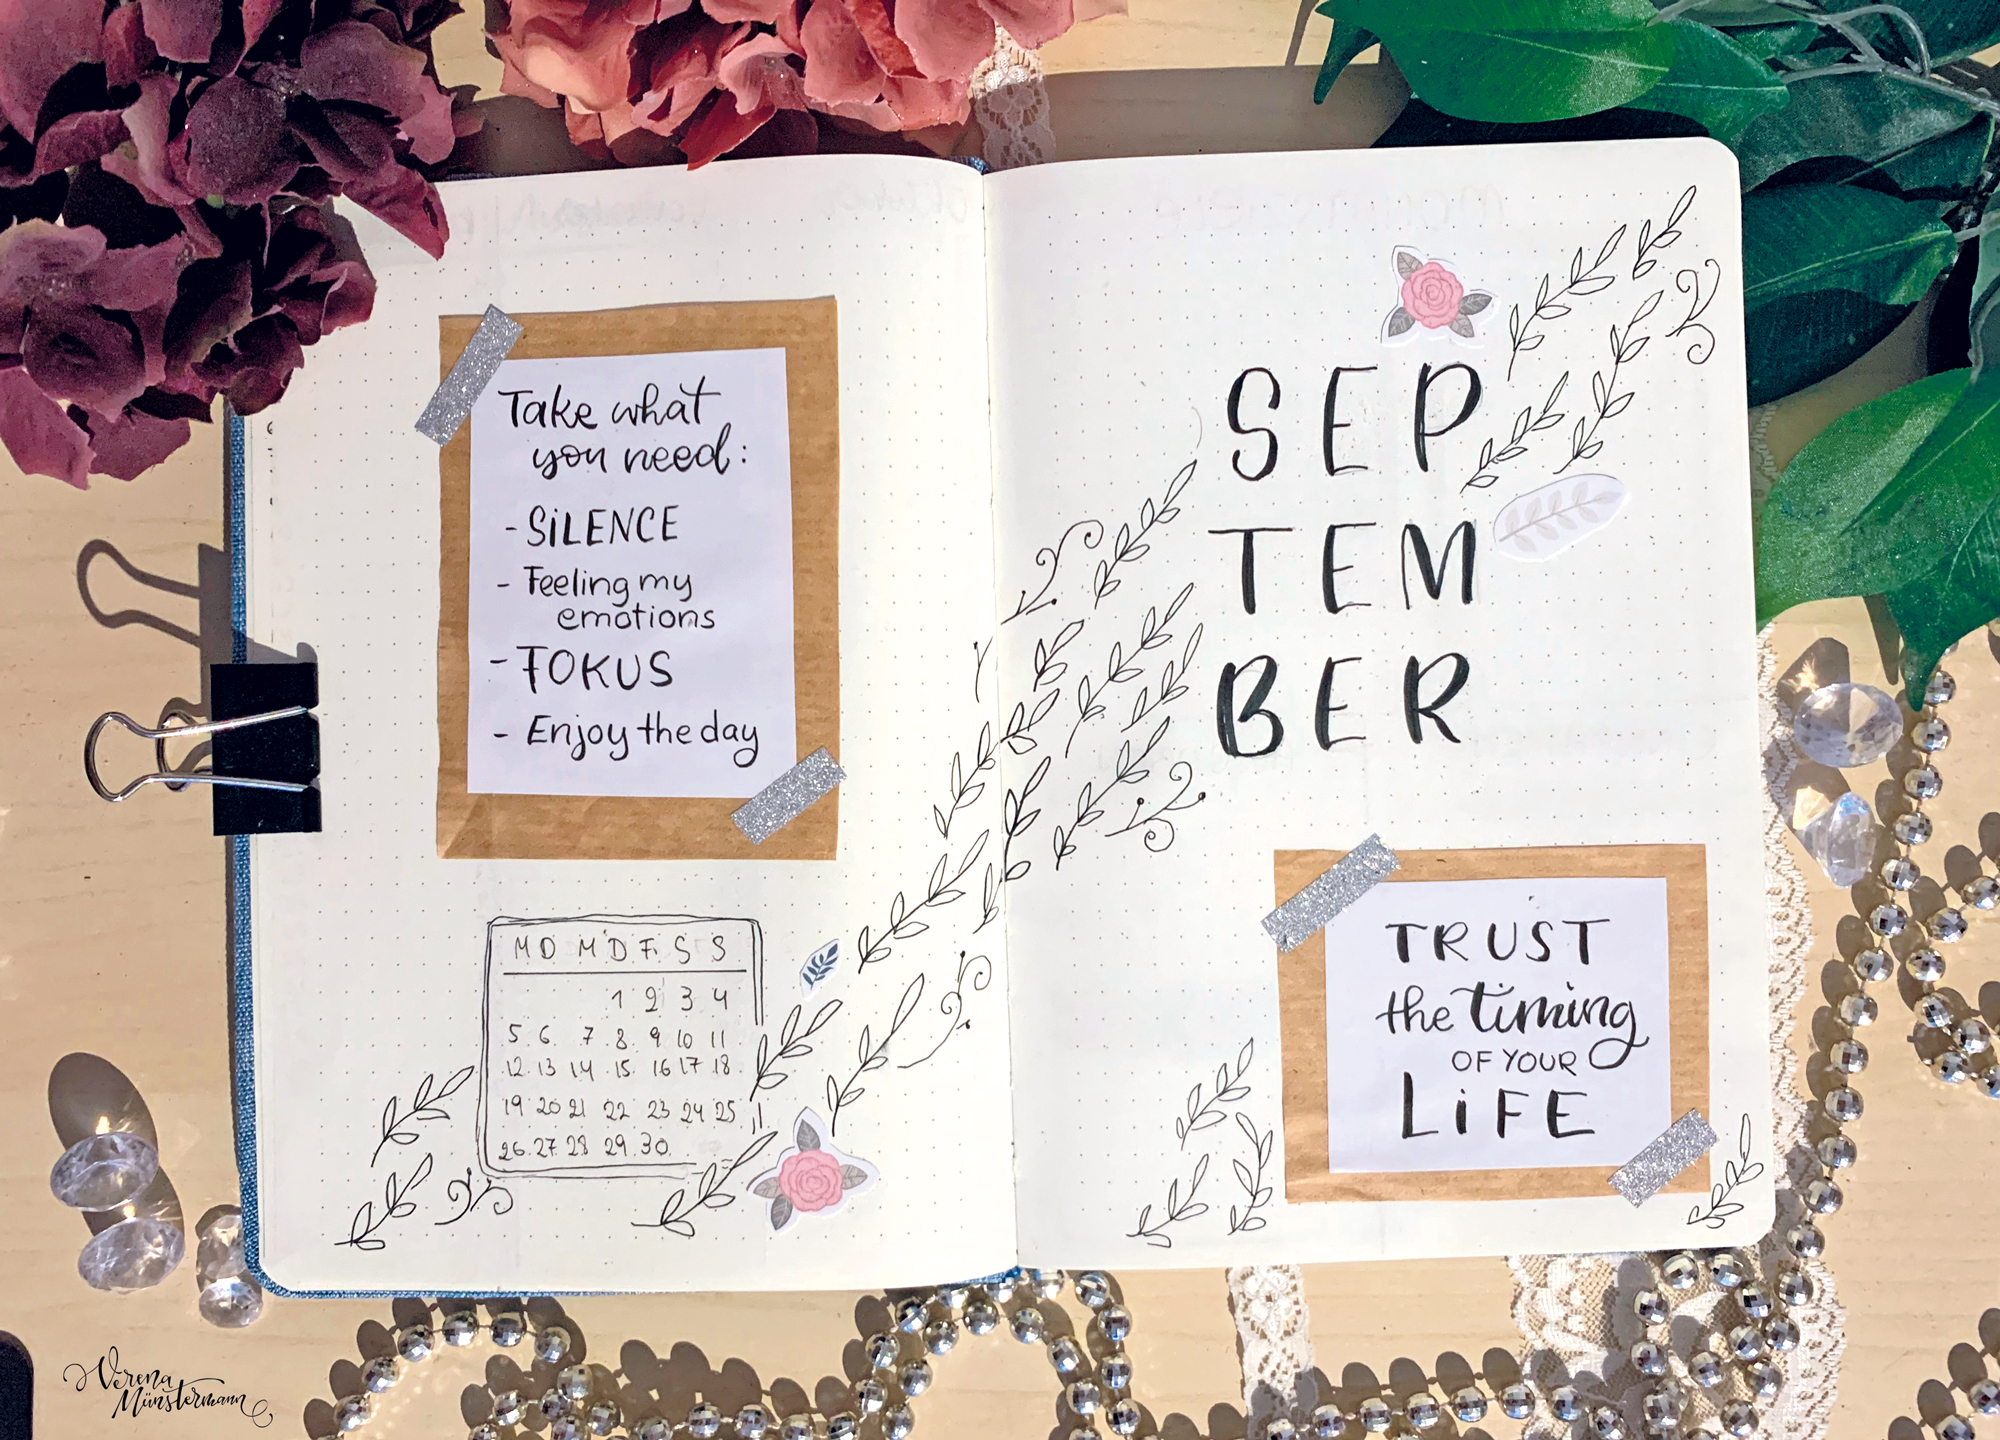 Take what
you need:
- SiLENCE
- Feeling my
emotions
- FOKUS
- Enjoy the day
M D M D F S S
1 2 3 4
5 6 7 8 9 10 11
12 13 14 15 16 17 18
19 20 21 22 23 24 25
26 27 28 29 30
SEP
TEM
BER
TRUST
the timing
OF YOUR
LiFE
Verena
Münstermann